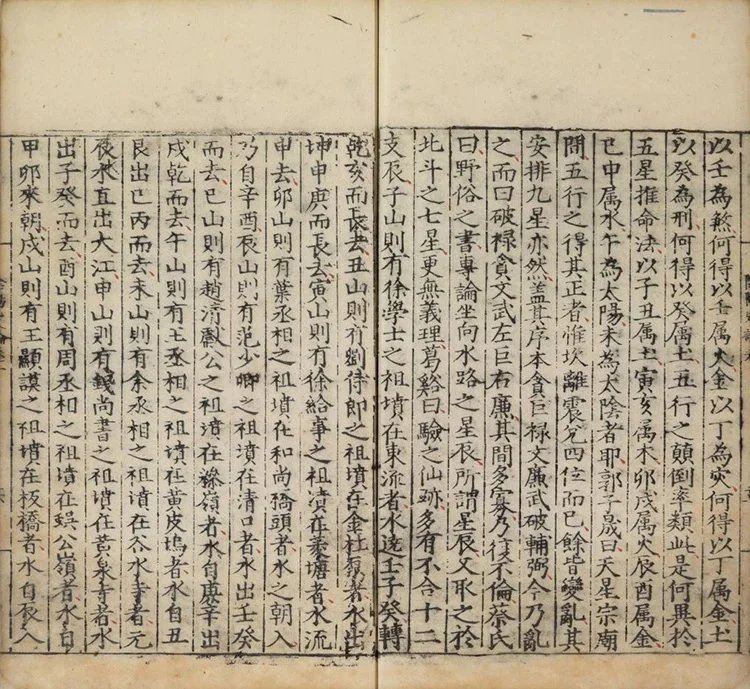 以壬為煞何得以壬屬火金以丁為灾何得以丁屬金土
以癸為刑何得以癸屬土五行之顛倒率類此是何異於
五星推命法以子丑属土寅亥属木卯戌属火辰酉属金
巳申属水午為太陽未為太陰者耶郭子晟曰天星宗廟
間五行之得其正者惟坎離震兌四位而已餘皆變亂其
安排九星亦然盖其序本貪巨禄文廉武破輔弼今乃亂
之而曰破禄貪文武左巨右廉其間多寡乃往不倫蔡氏
曰野俗之書專論坐向水路之星辰所謂星辰又取之於
北斗之七星更無義理葛谿曰驗之仙跡多有不合十二
支辰子山則有徐學士之祖墳在東流者水遶壬子癸轉
乾亥而長去丑山則有劉侍郎之祖墳在金杜者水出
坤申庚而長去寅山則有徐給事之祖墳在塘者水流
申去卯山則有葉丞相之祖墳在和尚橋頭者水之朝入
乃自辛酉辰山則有范少卿之祖墳在清口者水出壬癸
而去巳山則有趙清獻公之祖墳在嶺者水自庚辛出
戍乾而去午山則有王丞相之祖墳在黃皮塢者水自丑
艮出巳丙而去未山則有余丞相之祖墳在谷水寺者元
辰水直出大江申山則有錢尚書之祖墳在黃泉寺者水
出子癸而去酉山則有周丞相之祖墳在蜈公嶺者水自
甲卯來朝戌山則有王顯謨之祖墳在板橋者水自辰入